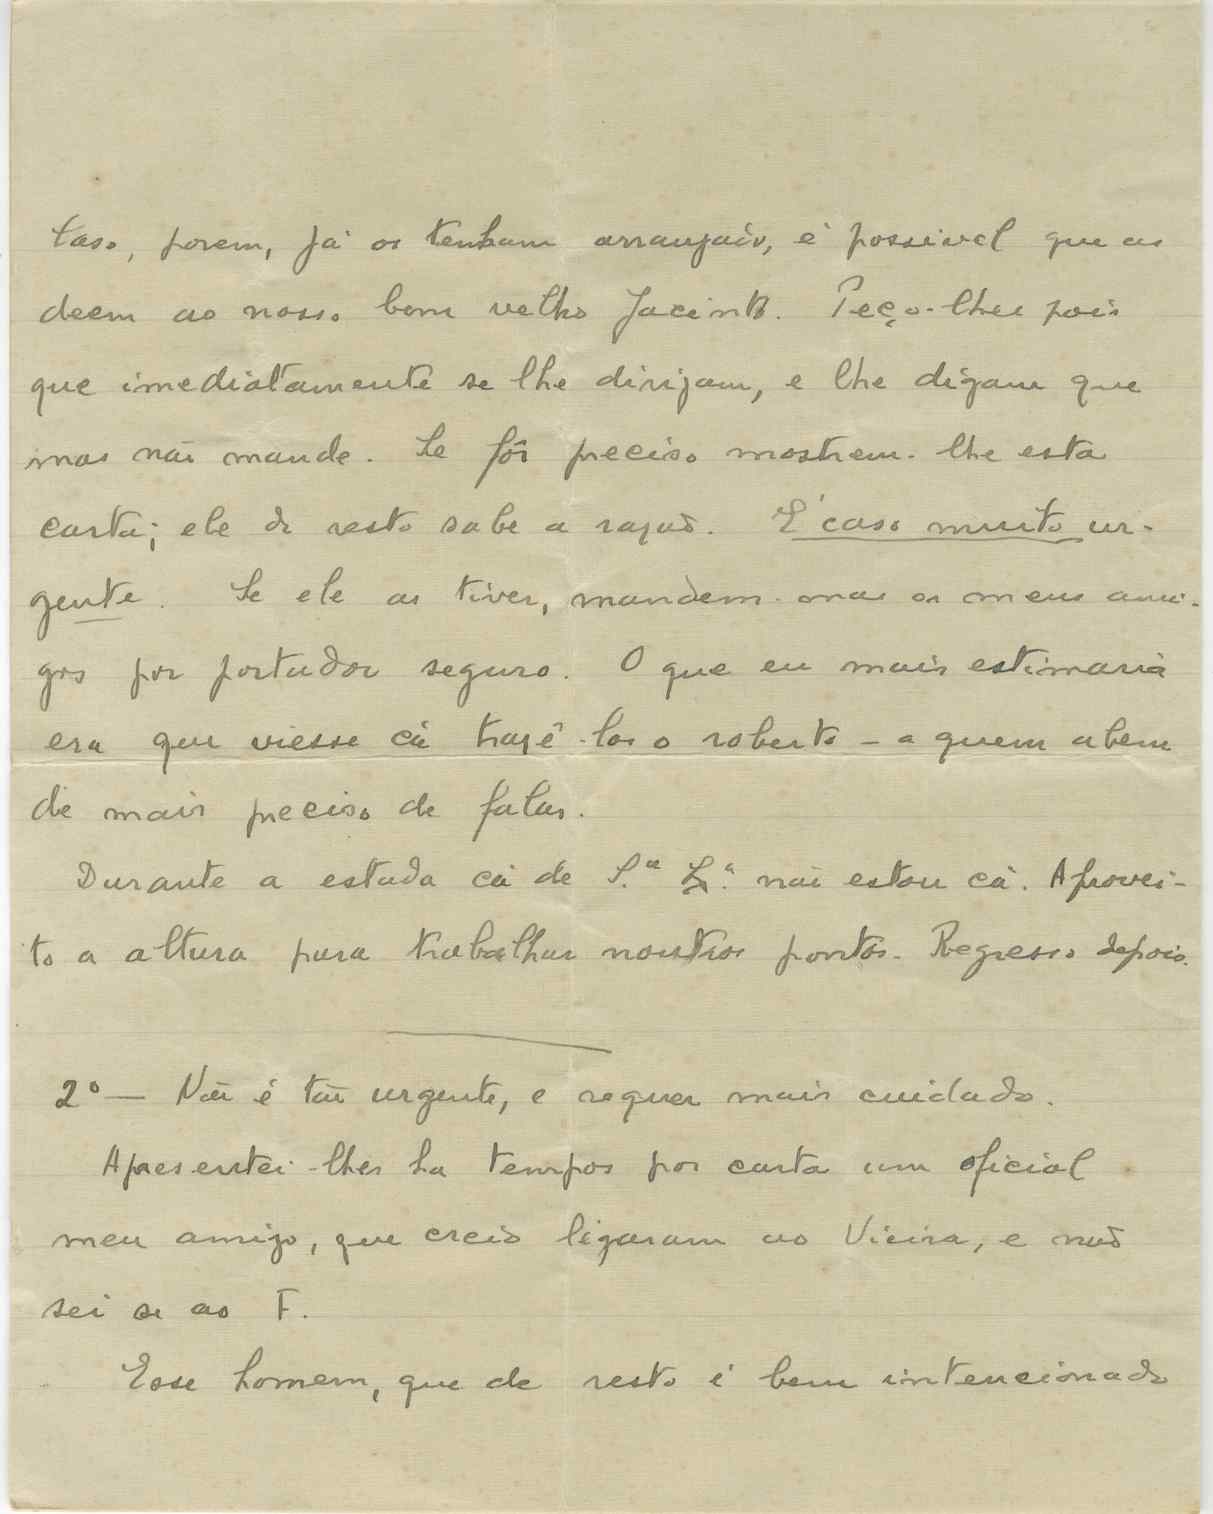 Caso, porem, já os tenham arranjado, é possivel que as
deem ao nosso bom velho Jacinto. Peço-lhes pois
que imediatamente se lhe dirijam, e lhe digam que
mas não mande. Se fôr preciso mostrem-lhe esta
carta; ele de resto sabe a razaõ. É caso muito ur-
gente. Se ele as tiver, mandem-mas os meus ami-
gos por portador seguro. O que eu mais estimaria
era que viesse cá trazê-las o roberto – a quem alem
de mais preciso de falar.
Durante a estada cá de S.ª Ex.ª não estou cá. Aprovei-
to a altura para trabalhar noutros pontos. Regresso depois.
2º — Não é tão urgente, e requer mais cuidado.
Apresentei-lhes ha tempos por carta um oficial
meu amigo, que creio ligaram ao Vieira, e naõ
sei se ao F.
Esse homem, que de resto é bem intencionado